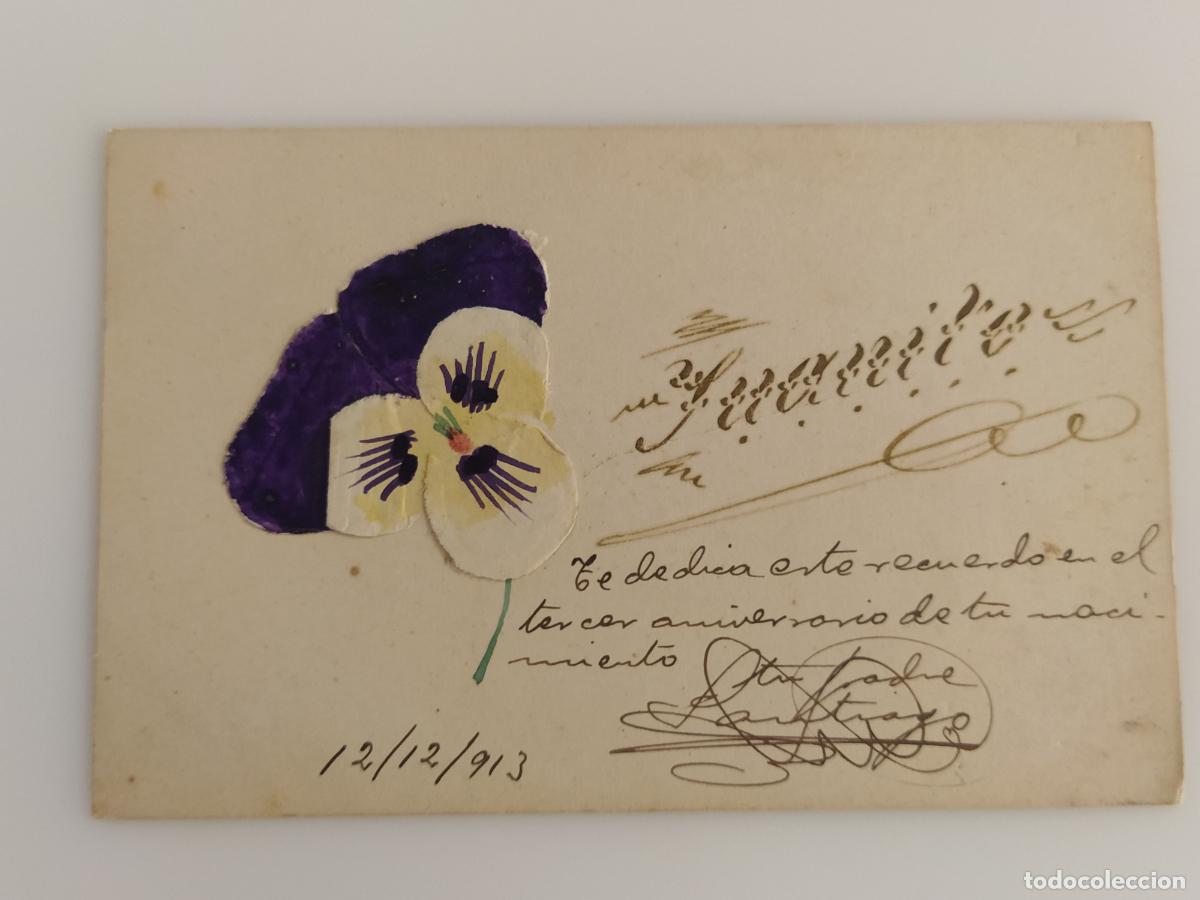 Juanito
Te dedica este recuerdo en el
tercer aniversario de tu naci-
miento
tu padre
Santiago
12/12/913
todocoleccion